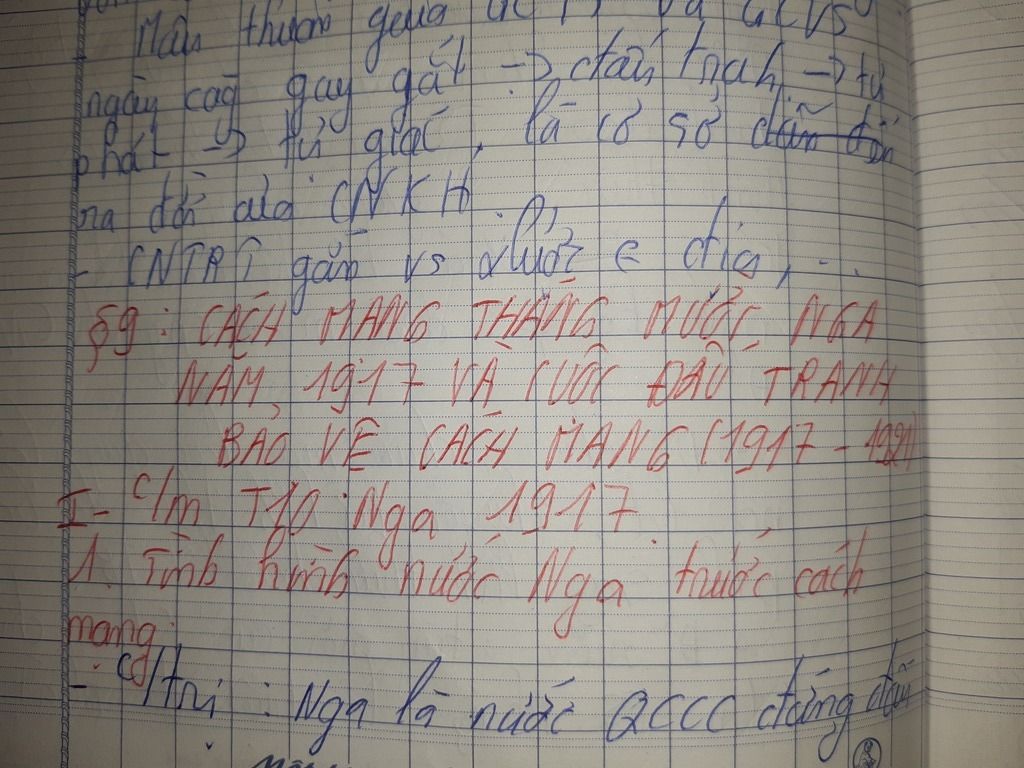 - Mâu thuẫn giữa GCTS và GCVS
ngày càg gay gắt -> đấu tranh -> tự
phát -> tự giác, là cơ sở dẫn đến
ra đời của CNXH
- CNTB gắn vs xlược t địa, ...
§9: CÁCH MẠNG THÁNG MƯỜI NGA
NĂM 1917 VÀ CUỘC ĐẤU TRANH
BẢO VỆ CÁCH MẠNG (1917 - 1921)
I - C/m T10 Nga 1917.
1. Tình hình nước Nga trước cách
mạng.
- C/trị: Nga là nước QCCC đứng đầu